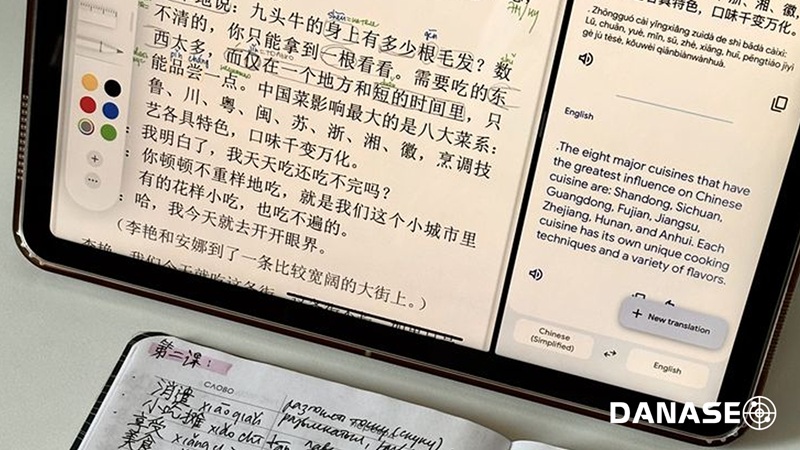 地说：九头牛的身上有多少根毛发？数
不清的，你只能拿到一根看看。需要吃的东
西太多，而仅在一个地方和短的时间里，只
能品尝一点。中国菜影响最大的是八大菜系：
鲁、川、粤、闽、苏、浙、湘、徽，烹调技
艺各具特色，口味千变万化。
我明白了，我天天吃还吃不完吗？
你顿顿不重样地吃，就是我们这个小城市里
有的花样小吃，也吃不遍的。
哈，我今天就去开开眼界。
（李艳和安娜到了一条比较宽阔的大街上。）
各具特色，口味千变万化。
Zhōngguó cài yǐngxiǎng zuìdà de shì bādà càixì:
Lǔ, chuān, yuè, mǐn, sū, zhè, xiāng, huī, pēngtiáo jìyì
gè jù tèsè, kǒuwèi qiānbiànwànhuà.
English
.The eight major cuisines that have
the greatest influence on Chinese
cuisine are: Shandong, Sichuan,
Guangdong, Fujian, Jiangsu,
Zhejiang, Hunan, and Anhui. Each
cuisine has its own unique cooking
techniques and a variety of flavors.
+ New translation
Chinese
(Simplified)
English
第二课：
СЛОВО
消遣 xiāoqiǎn
小吃摊 xiǎo chī tān
享受 xiǎng
美食
DANASE